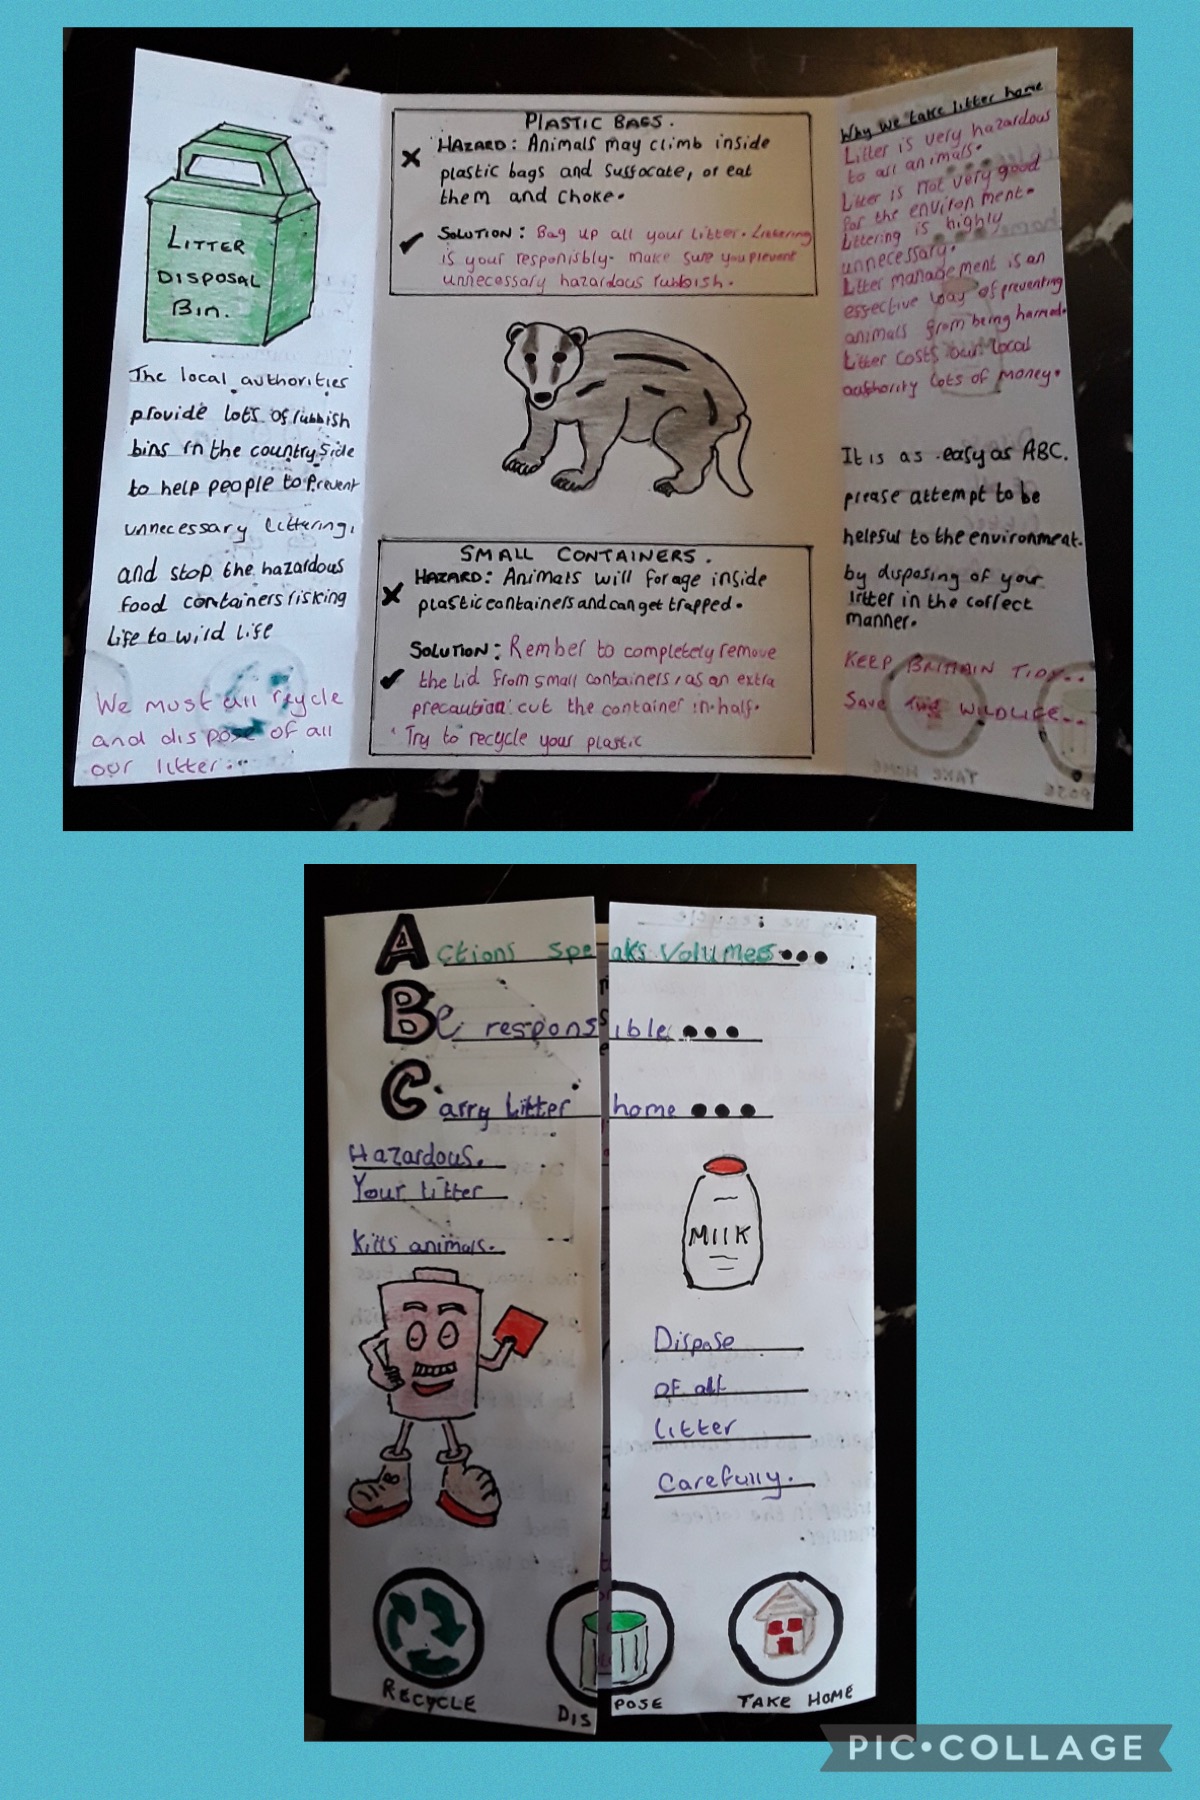 LITTER
DISPOSAL
Bin.
The local authorities
provide lots of rubbish
bins in the countryside
to help people to Prevent
unnecessary littering,
and stop the hazardous
food containers risking
life to wild life
We must all recycle
and dispose of all
our litter...
PLASTIC BAGS.
HAZARD: Animals may climb inside
plastic bags and suffocate, or eat
them and choke.
SOLUTION: Bag up all your litter. Littering
is your responisbly. make sure you prevent
unnecessary hazardous rubbish.
SMALL CONTAINERS.
HAZARD: Animals will forage inside
plastic containers and can get trapped.
SOLUTION: Rember to completely remove
the lid from small containers, as an extra
precaution cut the container in half.
Try to recycle your plastic
Why we take litter home
Litter is very hazardous
to all animals.
Litter is not very good
for the environment.
Littering is highly
unnecessary.
Litter management is an
essective way of preventing
animals from being harmed.
Litter costs our local
authority lots of money.
It is as easy as ABC.
please attempt to be
helpful to the environment.
by disposing of your
litter in the correct
manner.
KEEP BRITAIN TIDY..
Save the WILDLIFE..
TAKE HOME
POSE
Actions speaks Volumes...
Be responsible...
Carry litter home...
Hazardous.
Your litter
kills animals.
MIlK
Dispose
of all
litter
carefully.
RECYCLE
DISPOSE
TAKE HOME
PIC•COLLAGE